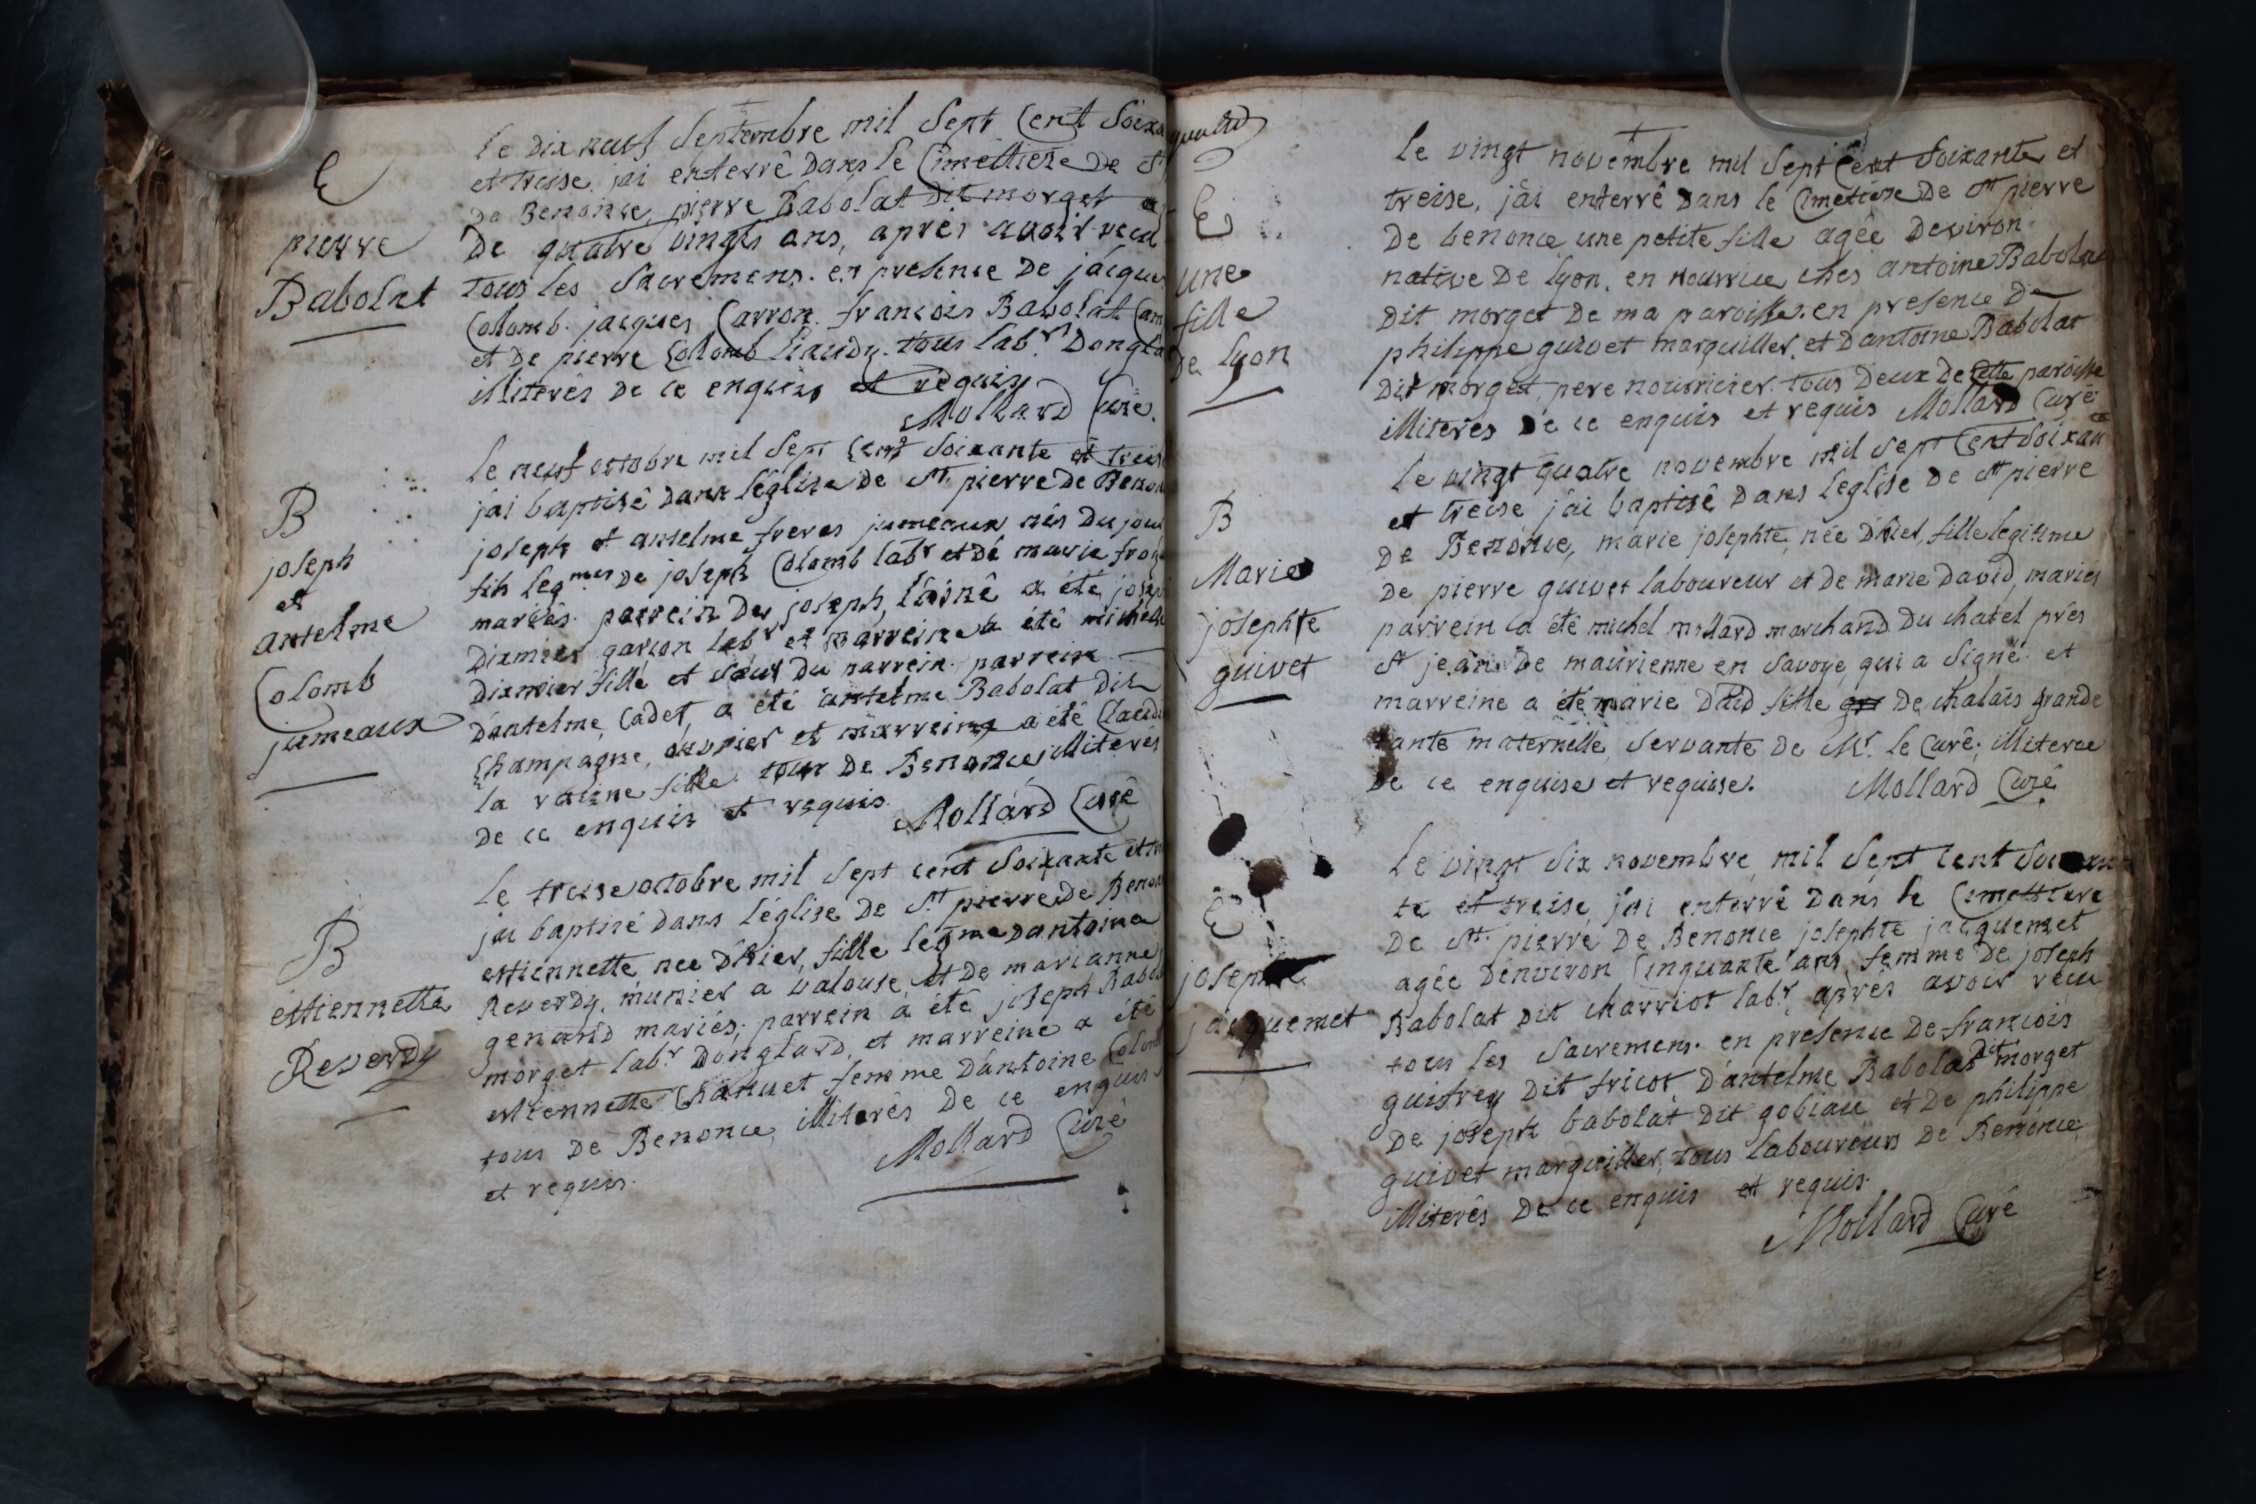 E
pierre
Babolat
le dix neuf Septembre mil Sept Cent Soixa
et treise jai enterrê dans le Cimettiere de St
de Benonce, pierre Babolat dit morget
de quatre vingts ans, après avoir recu
tous les Sacremens. en presence de jacques
Colomb. jacques Carron. francois Babolat
et de pierre Colomb liaudy. tous labrs Dongla
illiterés de ce enquis et requis
Mollard Curé.
B
joseph
et
antelme
Colomb
jumeaux
le neuf octobre mil Sept Cent Soixante et treis
j'ai baptisê dans l'église de St pierre de Benon
joseph et antelme freres jumeaux nés du jour
fils legmes de joseph Colomb labr et de marie
mariés. parrein de joseph, l'ainé a été josep
Dixmier garcon labr et marreine a été michelle
Dixmier fille et soeur du parrein. parrein
d'antelme, Cadet, a été antelme Babolat dit
Champagne, ouvrier et marreine a été Claudi
la racine fille. tous de Benonce illiteres
de ce enquis et requis.
Mollard Curé
B
estiennette
Reverdy
le treise octobre mil Sept cent Soixante et
jai baptisé dans l'église de St pierre de Benon
estiennette nee d'hier, fille legme dantoine
Reverdy, munier a valouse, et de marianne
genand mariés; parrein a été joseph Babol
morget labr Donglard, et marreine a été
estiennette Chanuet femme D'antoine Colomb
tous de Benonce, illiterés de ce enquis
et requis.
Mollard Curé
E
une
fille
de lyon
le vingt novembre mil Sept Cent Soixante et
treise, j'ai enterrê dans le Cimetiere de St pierre
de benonce une petite fille agée deviron
native de lyon. en nourrice ches antoine Babolat
dit morget de ma paroisse. en presence de
philippe guivet marguiller, et d'antoine Babolat
dit morget, pere nourricier. tous deux de cette paroisse
illiteres de ce enquis et requis Mollard Curé
B
Marie
josephte
guivet
le vingt quatre novembre mil Sept Cent Soixan
et treise j'ai baptisê dans leglise de St pierre
de Benonce, marie josephte, née d'hier, fille legitime
de pierre guivet laboureur et de marie david, mariés
parrein a été michel mollard marchand du chatel près
St jean de maurienne en Savoye, qui a Signé. et
marreine a été marie David fille de chalais grande
tante maternelle, servante de Mr. le Curê; illiteree
de ce enquise et requise.
Mollard Curé
E
josephte
jacquemet
le vingt Six novembre mil Sept cent Soixan
te et treise, jai enterré dans le Cimettiere
de St. pierre de Benonce josephte jacquemet
agée d'environ Cinquante ans, femme de joseph
Babolat dit charriot labr, après avoir recu
tous les Sacremens. en presence de francois
guifrey dit fricot d'antelme Babolat dit morget
de joseph babolat dit gobiau et de philippe
guivet marguiller, tous laboureurs de Benonce
illiterés de ce enquis et requis.
Mollard Curé